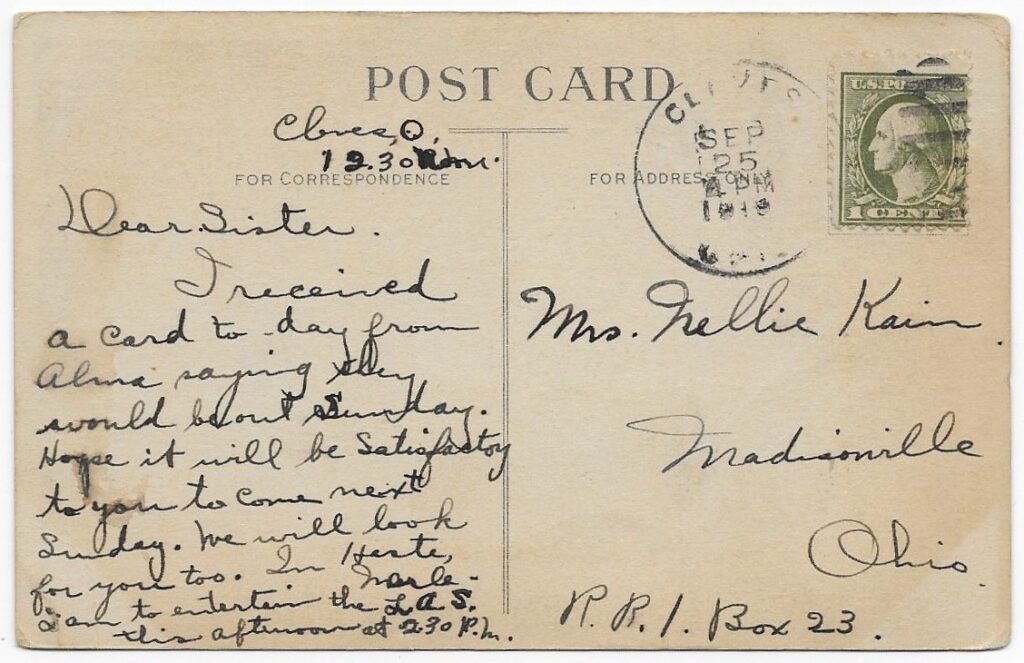 POST CARD
Cleves, O.
12.30
FOR CORRESPONDENCE
Dear Sister.
I received
a card to-day from
Alma saying they
would be out Sunday.
Hope it will be Satisfactory
to you to come next
Sunday. We will look
for you too. In Haste,
Merle-
I am to entertain the L.A.S.
this afternoon at 2.30 P.M.
FOR ADDRESS ONLY
SEP
25
4 PM
U.S. POSTAGE
1 CENT
Mrs. Nellie Kain
Madisonville
Ohio.
R. R. 1. Box 23.